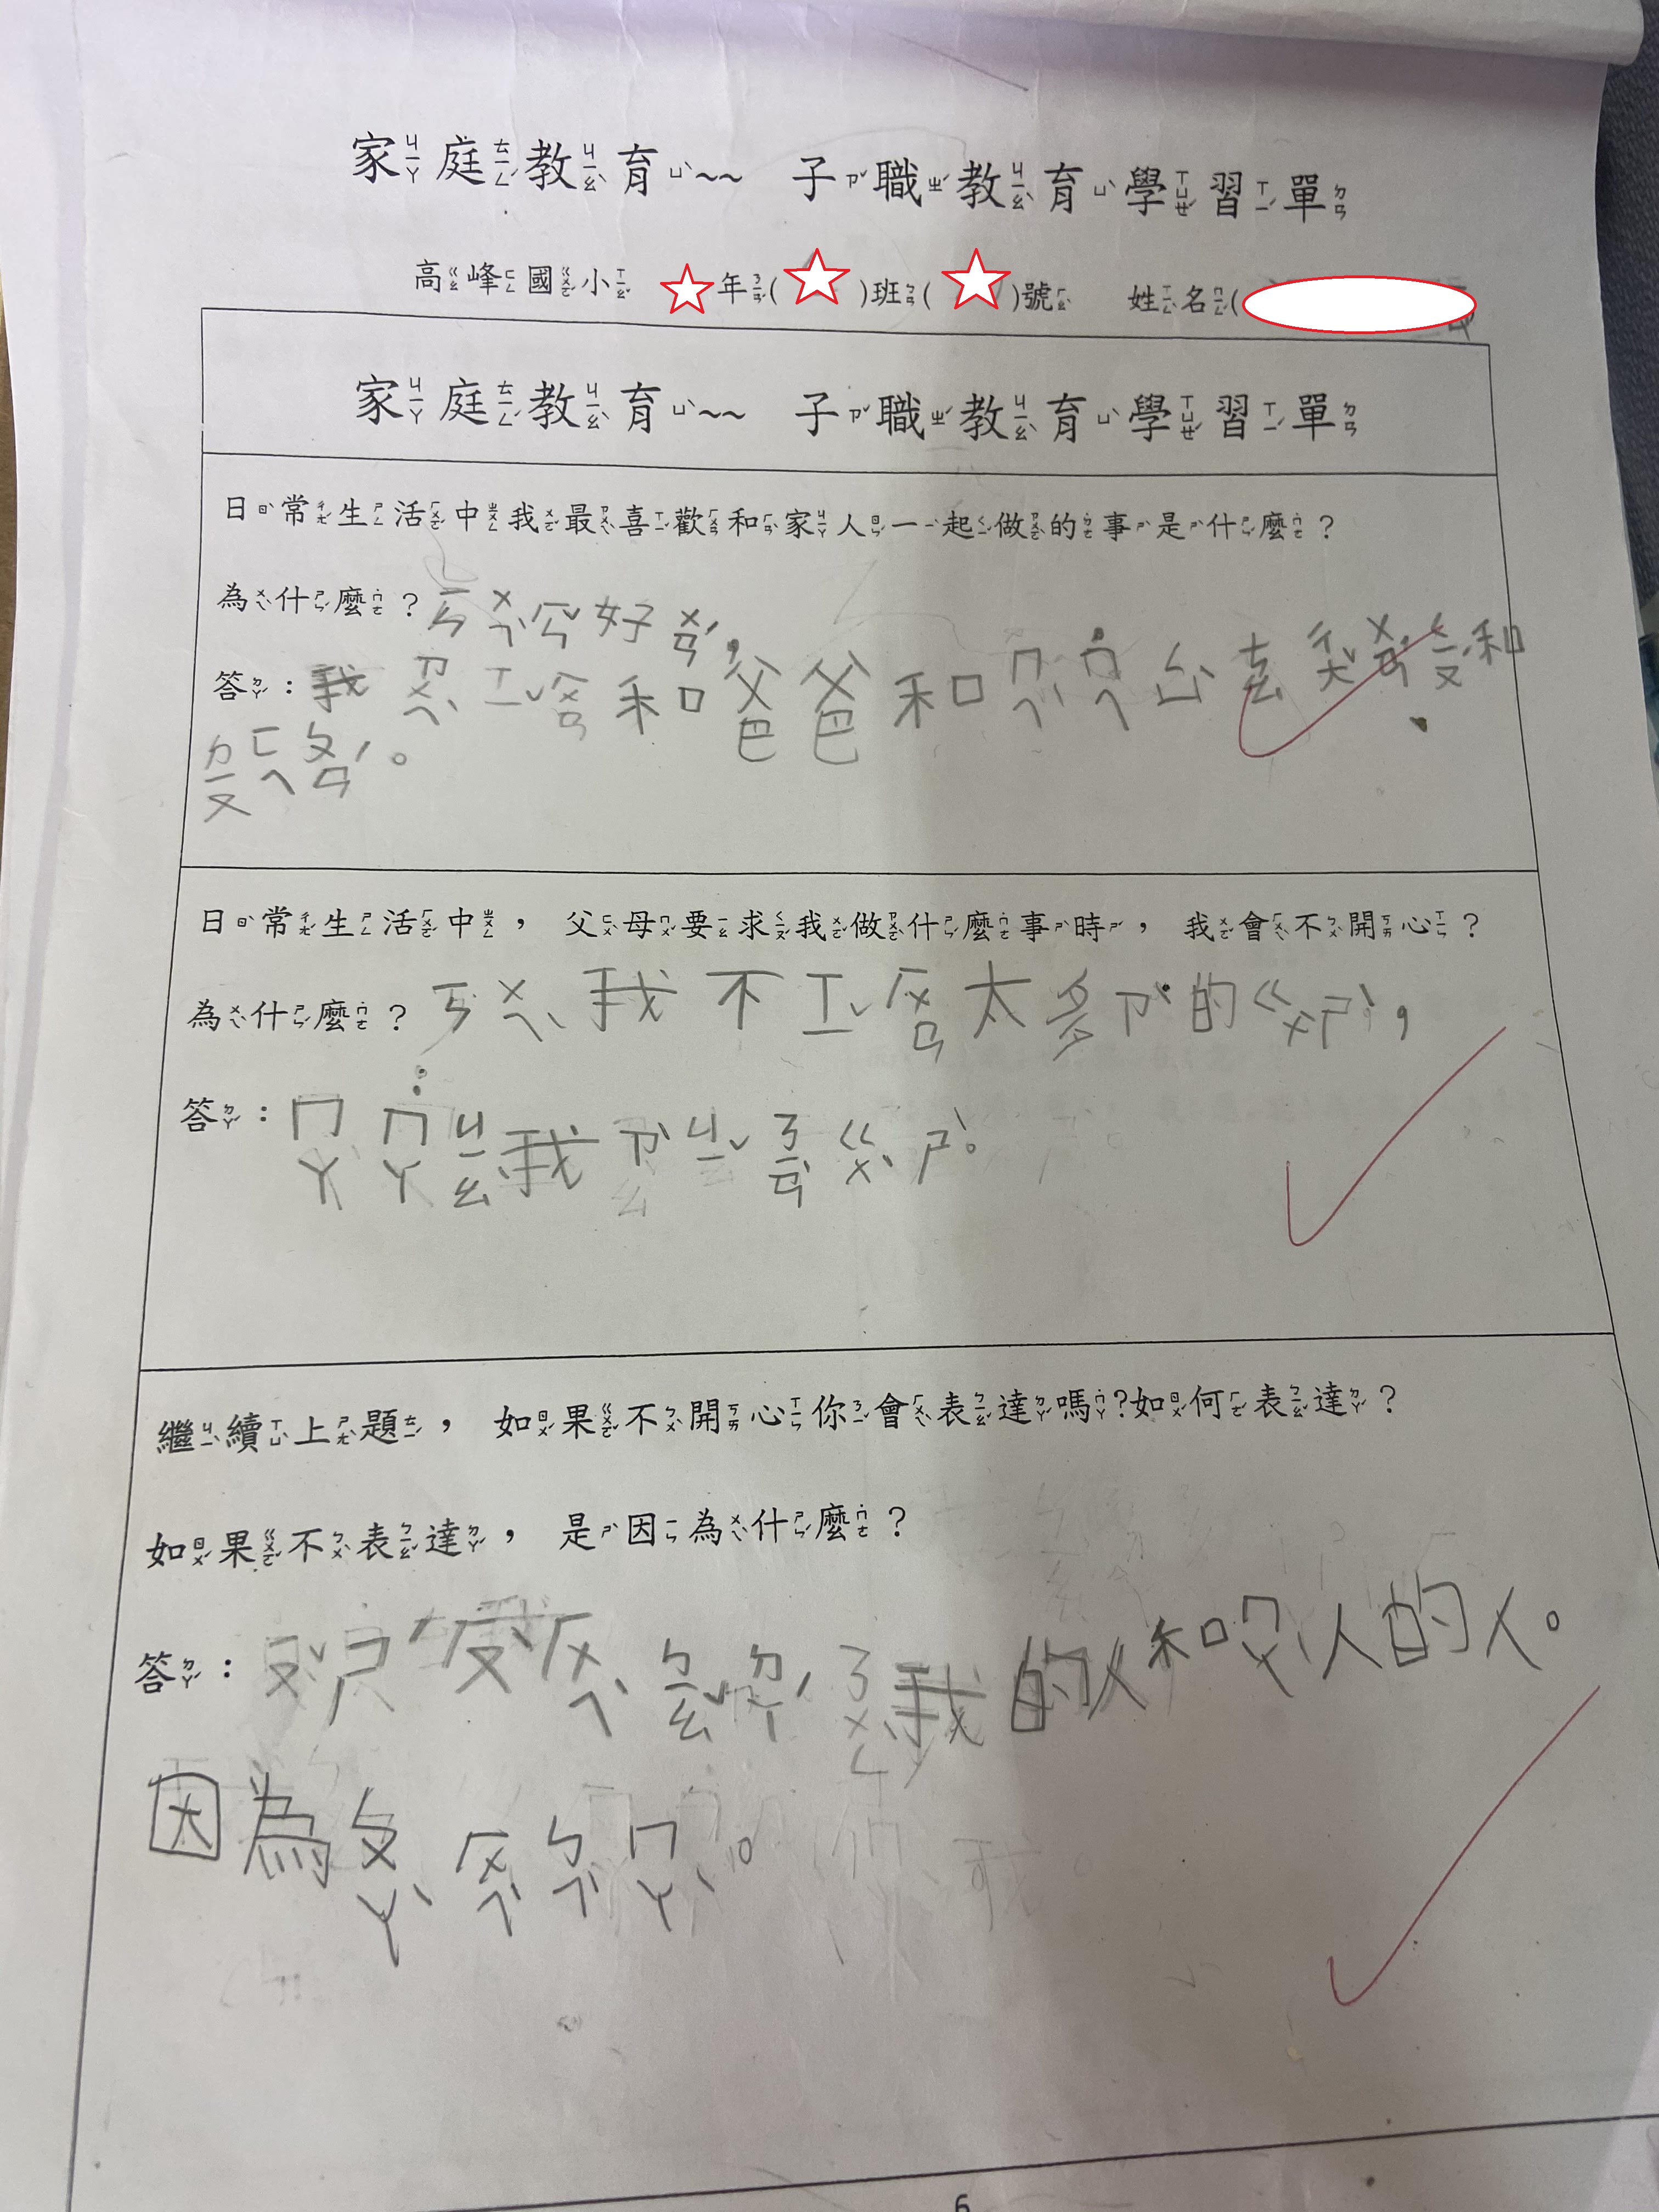 家庭教育~~ 子職教育學習單
高峰國小 年( )班( )號 姓名(
家庭教育~~ 子職教育學習單
日常生活中我最喜歡和家人一起做的事是什麼?
為什麼? ㄧㄣ ㄨㄟˋ ㄏㄣˇ 好 ㄨㄢˊ,
答:我 ㄗㄨㄟˋ ㄒㄧˇ ㄏㄨㄢ 和 爸 爸 和 ㄇㄟˋ ㄇㄟ˙ ㄔㄨ 去 ㄨㄢˊ ㄑㄧㄡˊ 和
ㄉㄧㄡ ㄈㄟ ㄆㄢˊ。
日常生活中,父母要求我做什麼事時,我會不開心?
為什麼? ㄧㄣ ㄨㄟˋ 我 不 ㄒㄧˇ ㄏㄨㄢ 太 多 ㄗˋ 的 ㄍㄨˋ ㄕˋ,
答:ㄇㄚ ㄇㄚ˙ ㄐㄧㄠˋ 我 ㄗˋ ㄐㄧˇ ㄋㄧㄢˋ ㄍㄨˋ ㄕˋ。
繼續上題,如果不開心你會表達嗎?如何表達?
如果不表達,是因為什麼?
答: ㄏㄨㄟˋ ㄅㄧㄠˇ ㄉㄚˊ 我 的 人 和 ㄇㄚˋ 人 的 人。
因為 ㄆㄚˋ ㄏㄨㄟˋ ㄅㄟˋ ㄇㄚˋ。
6